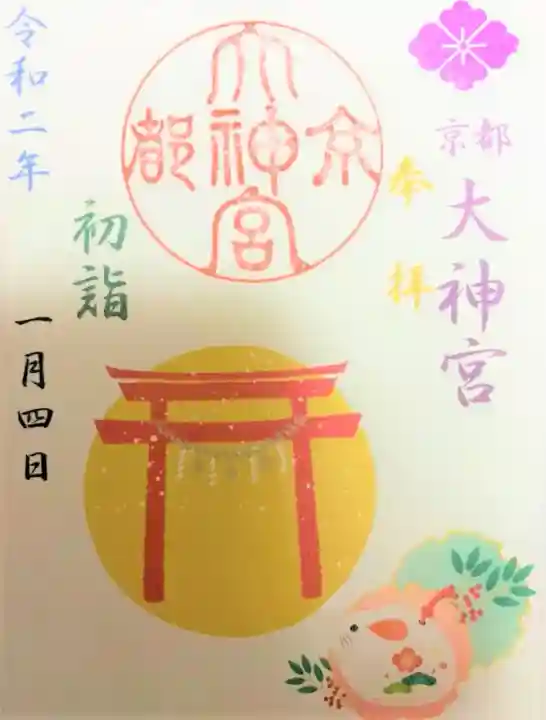 京都
大神宮
奉拝
大
京神都
宮
初詣
令和二年
一月四日